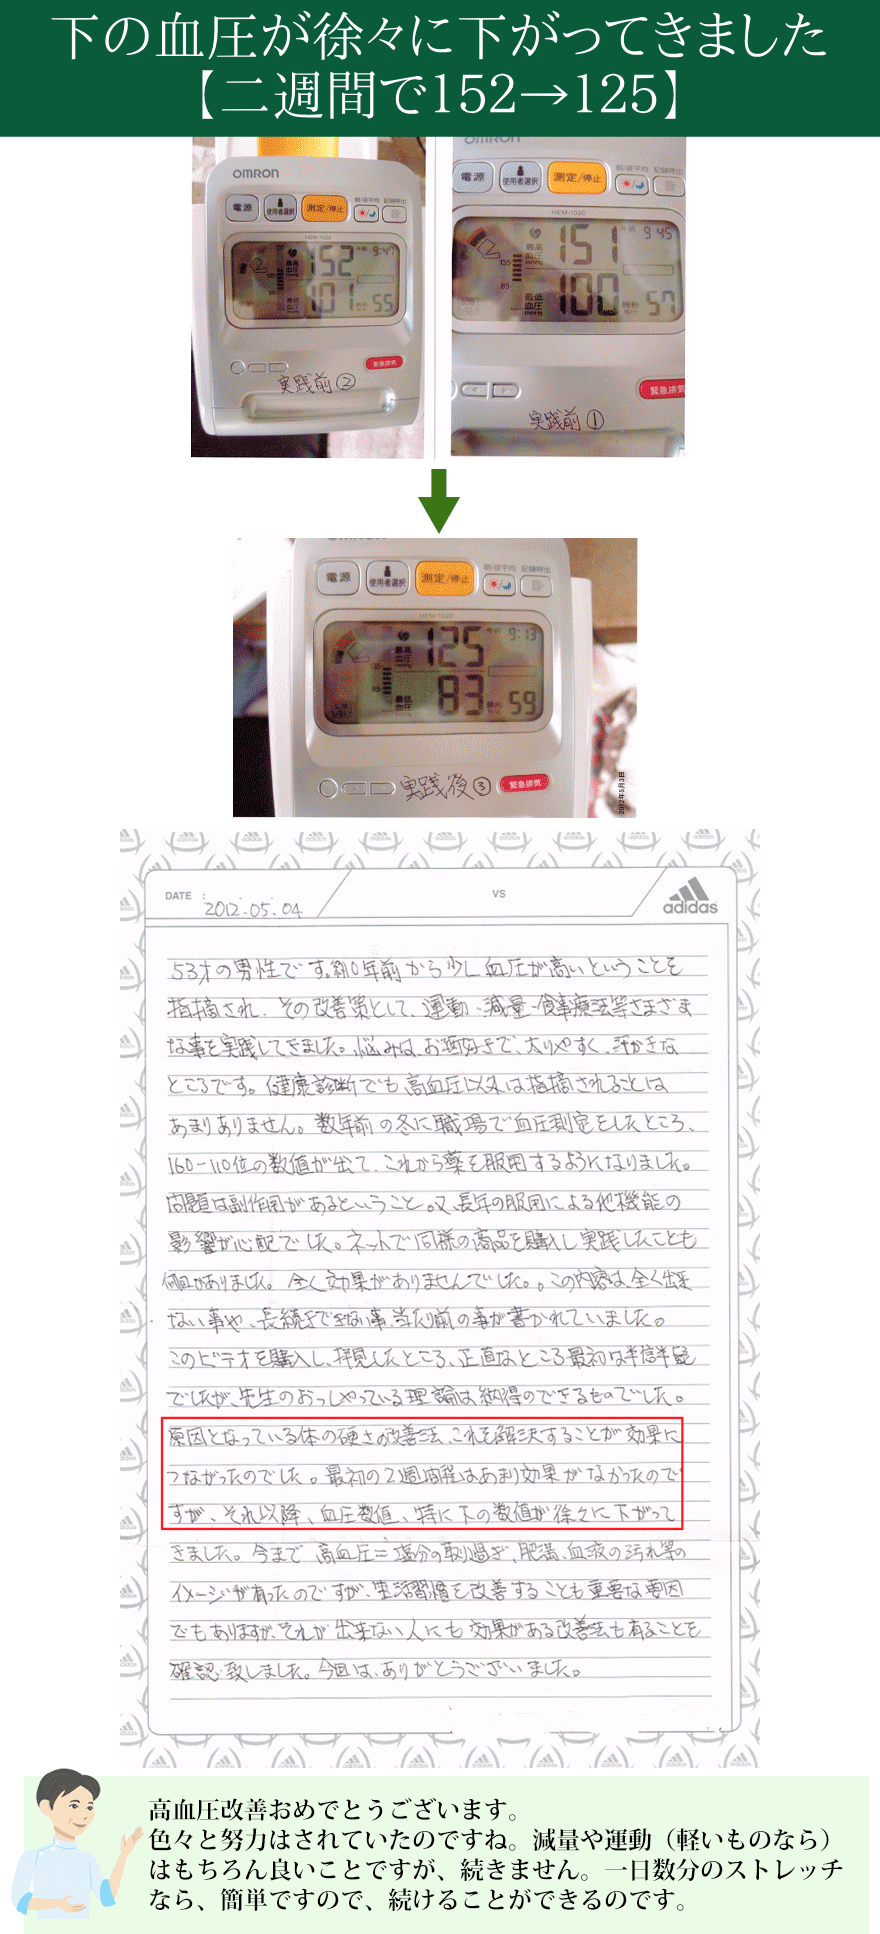 下の血圧が徐々に下がってきました
【二週間で152→125】
OMRON
電源
使用者選択
測定/停止
朝/夜平均
記録呼出
HEM-1020
最高血圧
152
9:47
135
85
最低血圧
101
55
緊急排気
実践前②
OMRON
電源
使用者選択
測定/停止
朝/夜平均
記録呼出
HEM-1020
最高血圧
151
午前
9:45
135
85
最低血圧
100
脈拍
57
緊急排気
実践前①
電源
使用者選択
測定/停止
朝/夜平均
記録呼出
HEM-1020
最高血圧
125
午前
9:13
135
85
最低血圧
83
脈拍
59
実践後③
緊急排気
2012年5月3日
DATE :
2012.05.04
VS
adidas
53才の男性です。約10年前から少し血圧が高いということを
指摘され、その改善策として、運動・減量・食事療法等さまざま
な事を実践してきました。悩みは、お酒好きで、太りやすく、汗かきな
ところです。健康診断でも高血圧以外は指摘されることは
あまりありません。数年前の冬に職場で血圧測定をしたところ、
160-110位の数値が出て、これから薬を服用するようになりました。
問題は副作用があるということ。又、長年の服用による他機能の
影響が心配でした。ネットで同様の商品を購入し実践したことも
何回かありました。全く効果がありませんでした。。この内容は、全く出来
ない事や、長続きできない事、当たり前の事が書かれていました。
このビデオを購入し、拝見したところ、正直なところ最初は半信半疑
でしたが、先生のおっしゃっている理論は納得のできるものでした。
原因となっている体の硬さの改善法、これを解決することが効果に
つながったのでした。最初の2週間程はあまり効果がなかったので
すが、それ以降、血圧数値、特に下の数値が徐々に下がって
きました。今まで高血圧=塩分の取り過ぎ、肥満、血液の汚れ等の
イメージが有ったのですが、生活習慣を改善することも重要な要因
でもありますが、それが出来ない人にも効果がある改善法も有ることを
確認致しました。今回は、ありがとうございました。
高血圧改善おめでとうございます。
色々と努力はされていたのですね。減量や運動（軽いものなら）
はもちろん良いことですが、続きません。一日数分のストレッチ
なら、簡単ですので、続けることができるのです。